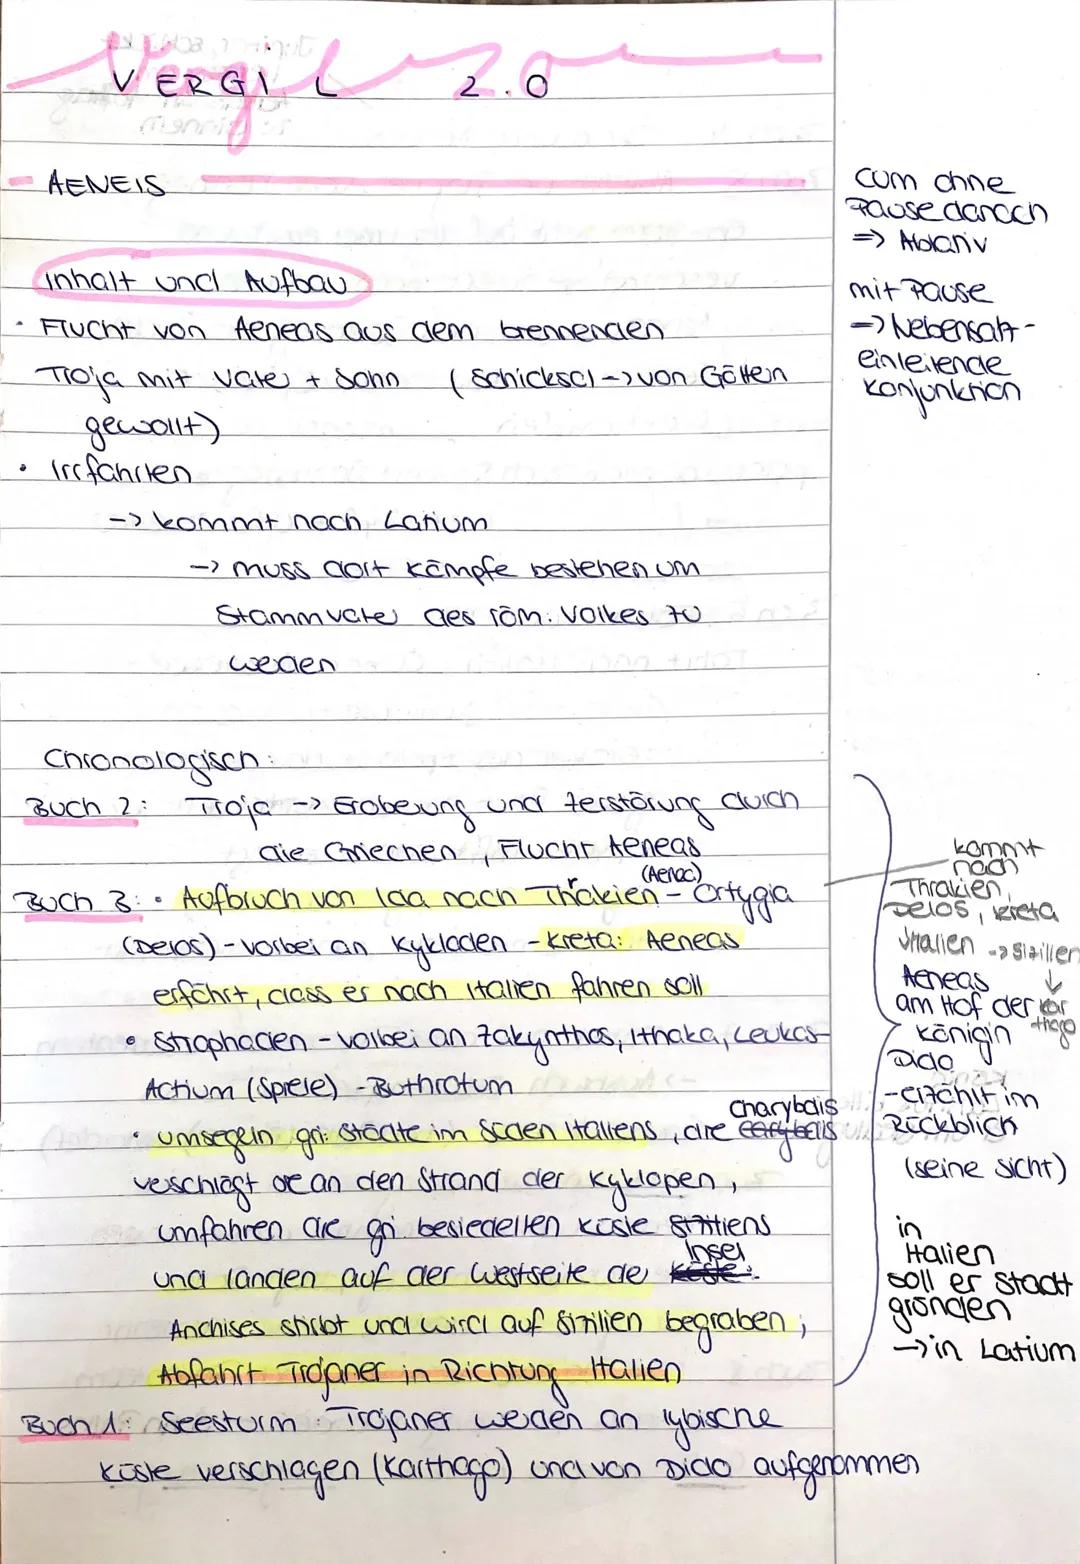 Vergil 2.0
VERGIL 2.0
AENEIS
Inhalt und Aufbau
· Flucht von Aeneas aus dem brennenden
Troja mit Vater + Sohn (Schicksal -> von Göttern
gewollt)
· Irrfahrten
-> kommt nach Latium
-> muss dort Kämpfe bestehen um
Stammvater des röm. Volkes zu
werden
Chronologisch:
Buch 2: Troja -> Eroberung und Zerstörung durch
die Griechen, Flucht Aeneas
(Aenac)
Buch 3: · Aufbruch von Ida nach Thrakien - Ortygia
(Delos) - vorbei an Kykladen - Kreta: Aeneas
erfährt, dass er nach Italien fahren soll
· Strophaden - vorbei an Zakynthos, Ithaka, Leukas -
Actium (Spiele) - Buthrotum
· umsegeln gri. Städte im Süden Italiens, die Charybdis
verschlägt sie an den Strand der Kyklopen,
umfahren die gri besiedelten Küste Siziliens
und landen auf der Westseite der Insel
Anchises stirbt und wird auf Sizilien begraben;
Abfahrt Trojaner in Richtung Italien
Buch 1: Seesturm: Trojaner werden an lybische
Küste verschlagen (Karthago) und von Dido aufgenommen
cum ohne
Pause danach
=> Ablativ
mit Pause
=> Nebensatz-
einleitende
Konjunktion
kommt
nach
Thrakien,
Delos, Kreta
Italien -> Sizilien
↓
Karthago
Aeneas
am Hof der
Königin
Dido
- erzählt im
Rückblich
(seine Sicht)
in
Italien
soll er Stadt
gründen
-> in Latium